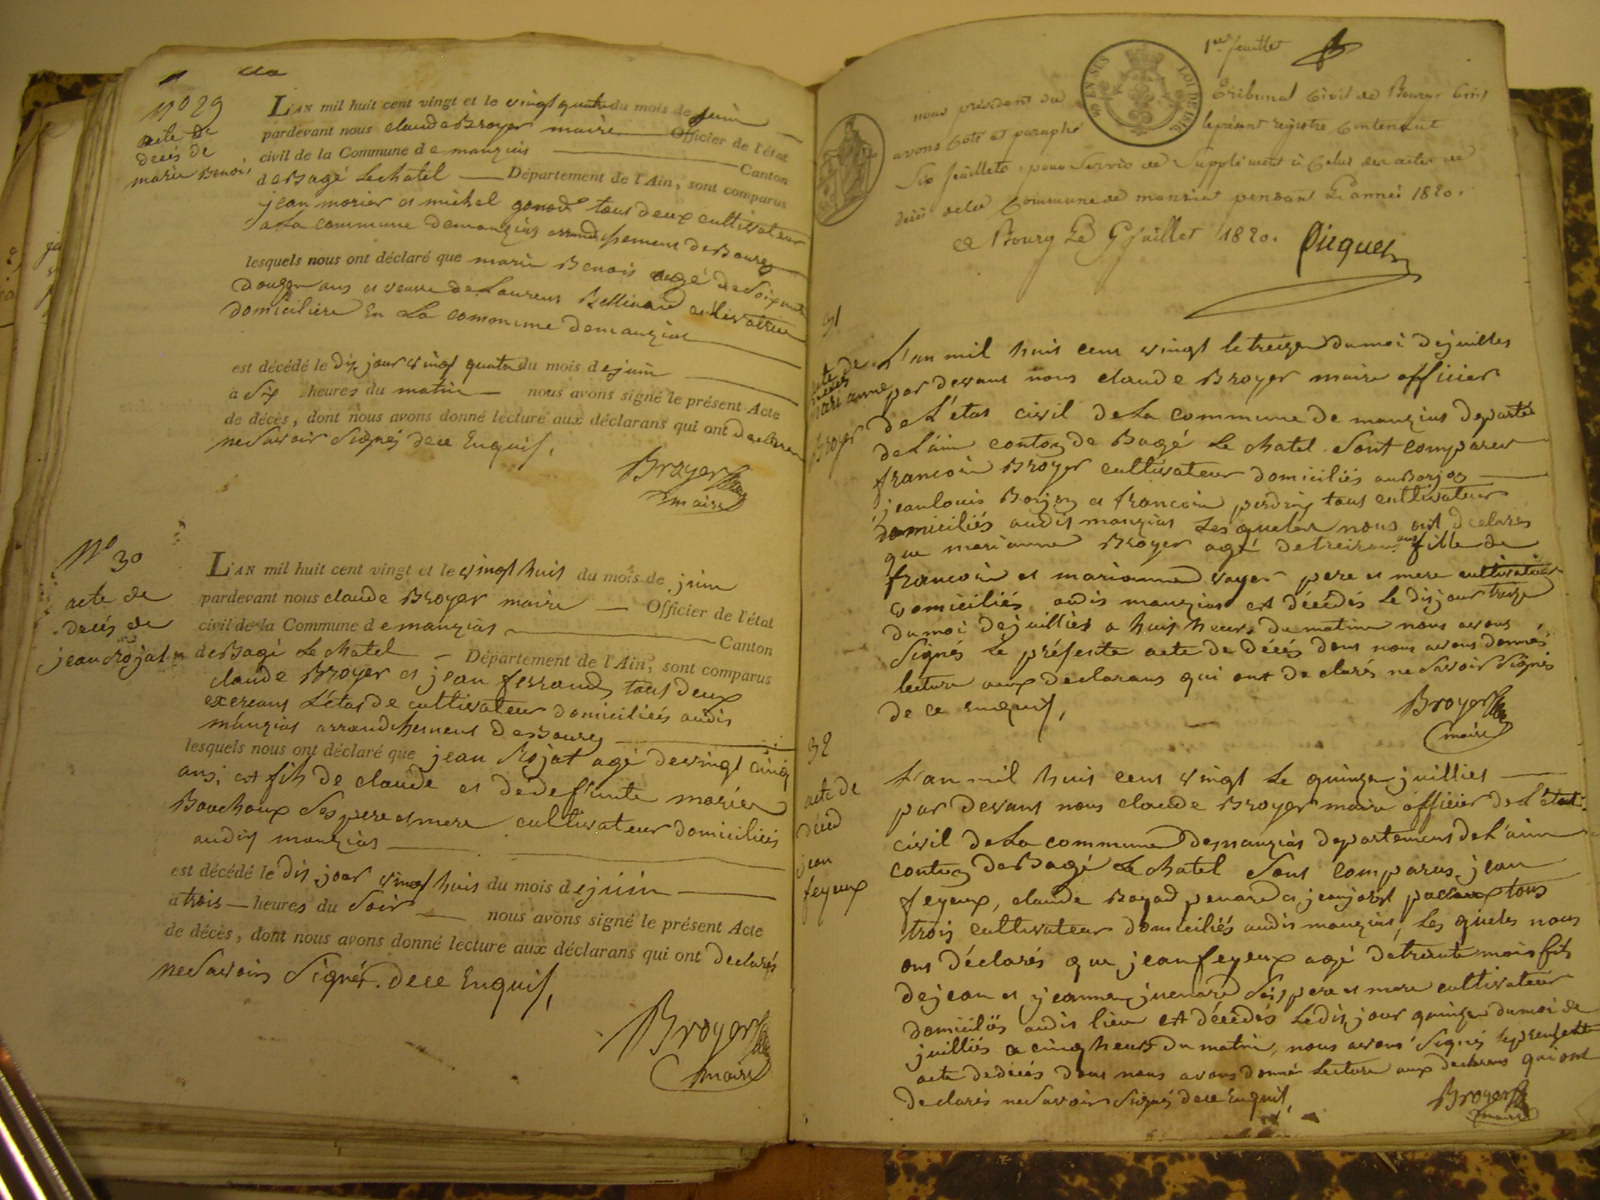 N° 29
acte de
decés de
marie Benois
LAN mil huit cent vingt et le vingt quatre du mois de juin
pardevant nous claude Broyer maire Officier de l'état
civil de la Commune de manzias Canton
de Bagé Le chatel Département de l'Ain, sont comparus
jean morier et michel tous deux cultivateur
de La commune de manzias arrondissement de Bourg
lesquels nous ont déclaré que marie Benois agé de soixante
douze ans et veuve de Laurens cultivatrice
domiciliere En La commune de manzias
est décédé le dix jour vingt quatre du mois de juin
à six heures du matin nous avons signé le présent Acte
de décès, dont nous avons donné lecture aux déclarans qui ont declaré
ne savoir Signés de ce Enquis,
Broyer
maire
N° 30
acte de
decés de
jean Rojat
LAN mil huit cent vingt et le vingt huit du mois de juin
pardevant nous claude Broyer maire Officier de l'état
civil de la Commune de manzias Canton
de Bagé Le chatel Département de l'Ain, sont comparus
claude Broyer et jean ferrand tous deux
exercans L'état de cultivateur domiciliés audis
manzias arrondissement de Bourg
lesquels nous ont déclaré que jean Rojat agé de vingt cinq
ans, est fils de claude et de defunte marie
Bouchoux Ses pere et mere cultivateur domiciliés
audis manzias
est décédé le dis jour vingt huis du mois de juin
à trois heures du Soir nous avons signé le présent Acte
de décès, dont nous avons donné lecture aux déclarans qui ont declarés
ne Savoir Signés. de ce Enquis,
Broyer
maire
1er feuillet
EN SUS
nous président du Tribunal Civil de Bourg
avons coté et paraphé le présent registre Contenant
Six feuillets, pour Servir de Supplément à Celui des actes de
décès de la Commune de manziat pendant L'année 1820.
a Bourg Le 9 juillet 1820. Picquet
31
acte de
décés
mari anne
Broyer
L'an mil huis cens vingt le treize du moi de juilles
par devans nous claude Broyer maire officier
de L'etas civil de La commune de manzias departé
de L'ain conton de Bagé Le chatel sont comparer
francois Broyer cultivateur domiciliés
jean louis et francois perdrix tous cultivateur
domiciliés audis manzias Les quelur nous ont declarer
que marianne Broyer agé de treize ans fille de
francois et marianne voyer pere et mere cultivateur
domiciliés audis manzias est décédés Le dis jour treize
du moi de juilliés a huis heures du matin nous avons
Signés le présente acte de décés dons nous avons donnés
lecture aux declarans qui ont declarés ne savoir Signés
de ce enquis,
Broyer
maire
32
acte de
déced
jean
feyeux
L'an mil huis cens vingt Le quinze juilliés
par devans nous claude Broyer maire officier de L'état
civil de La commune de manzias departement de L'ain
conton de Bagé Le chatel Sont comparus jean
feyeux, claude Boyad penard et jean tous
trois cultivateur domiciliés audis manzias, Les queles nous
ons déclarés que jean feyeux agé de trente mois fils
de jean et jeanne juenard Ses pere et mere cultivateur
domiciliés audis lieu est décédés Le dis jour quinze du moi de
juilliés a cinq heures du matin, nous avons Signés le présente
acte de décés dons nous avons donné Lecture aux declarans qui ont
declarés ne savoir Signés de ce Enquis,
Broyer
maire